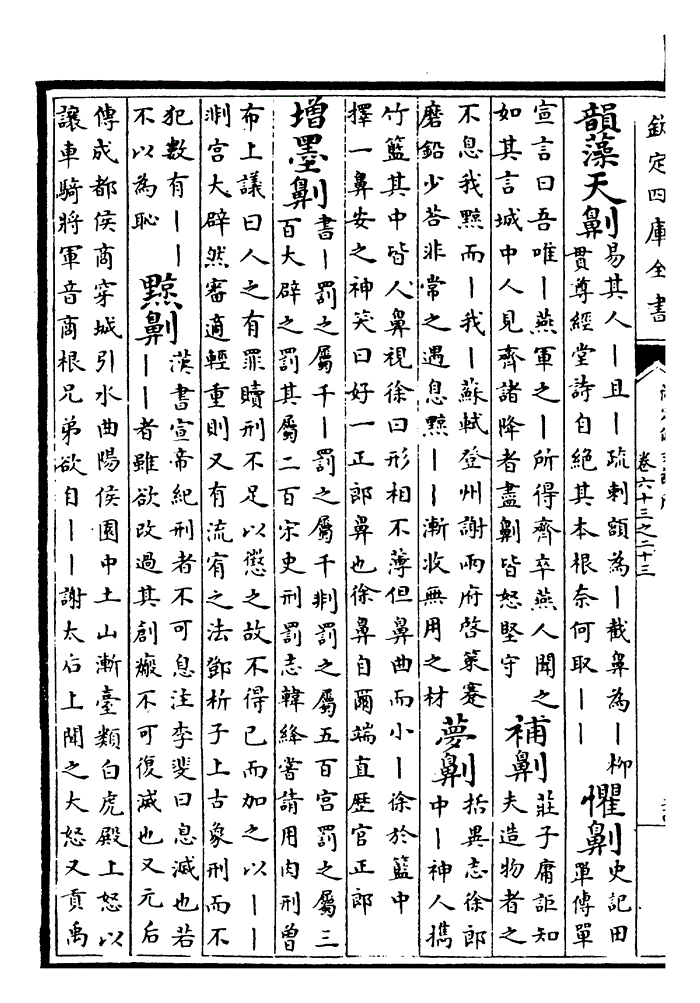 欽定四庫全書
卷六十三之二十三
韻藻天劓
易其人丨且丨疏刺額為丨截鼻為丨柳
貫尊經堂詩自絕其本根奈何取丨丨
懼劓
史記田
單傳單
宣言曰吾唯丨燕軍之丨所得齊卒燕人聞之
如其言城中人見齊諸降者盡劓皆怒堅守
補劓
莊子庸詎知
夫造物者之
不息我黥而丨我丨蘇軾登州謝兩府啓策蹇
磨鉛少答非常之遇息黥丨丨漸收無用之材
夢劓
括異志徐郎
中丨神人攜
竹籃其中皆人鼻視徐曰形相不薄但鼻曲而小丨徐於籃中
擇一鼻安之神笑曰好一正郎鼻也徐鼻自爾端直歴官正郎
增墨劓
書丨罰之屬千丨罰之屬千剕罰之屬五百宮罰之屬三
百大辟之罰其屬二百宋史刑罰志韓絳嘗請用肉刑曾
布上議曰人之有罪贖刑不足以懲之故不得已而加之以丨丨
剕宮大辟然審適輕重則又有流宥之法鄧析子上古象刑而不
犯數有丨丨
不以為恥
黥劓
漢書宣帝紀刑者不可息注李斐曰息滅也若
丨丨者雖欲改過其創瘢不可復滅也又元后
傳成都侯商穿城引水曲陽侯園中土山漸臺類白虎殿上怒以
讓車騎將軍音商根兄弟欲自丨丨謝太后上聞之大怒又貢禹